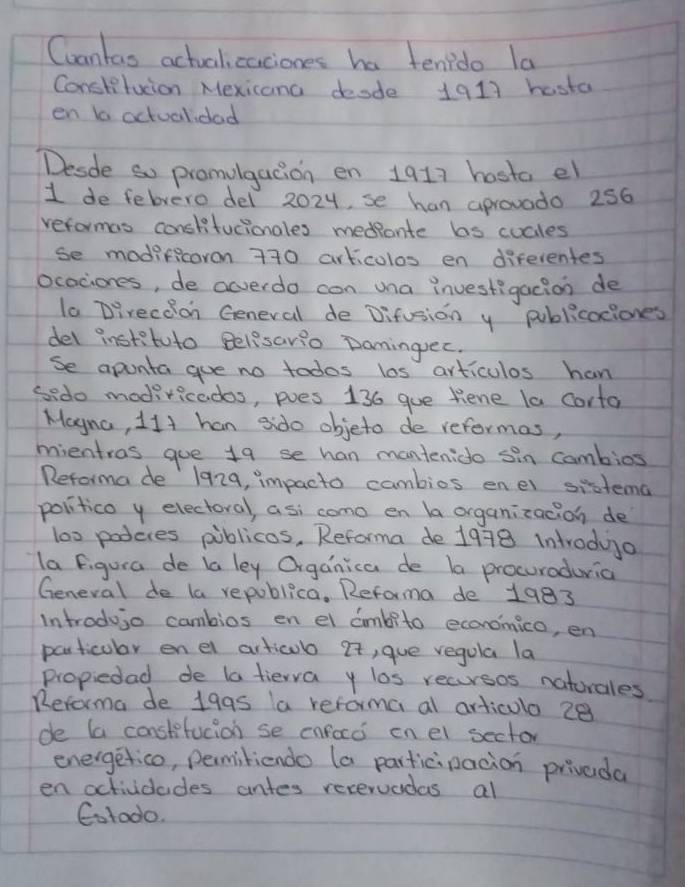 Cuantas actualizaciones ha tenido la
Constitucion Mexicana desde 1917 hasta
en la actualidad
Desde su promulgación en 1917 hasta el
1 de febrero del 2024, se han aprovado 256
reformas constitucionales mediante las cuales
se modificaron 770 articulos en diferentes
ocaciones, de acuerdo con una investigación de
la Dirección General de Difusión y publicaciones
del instituto Belisario Dominguez.
Se apunta que no todos los artículos han
sido modificados, pues 136 que tiene la Carta
Magna, 117 han sido objeto de reformas,
mientras que 19 se han mantenido sin cambios
Reforma de 1929, impacto cambios en el sistema
político y electoral, asi como en la organización de
los poderes públicos. Reforma de 1978 introdujo
la figura de la ley Orgánica de la procuraduría
General de la republica. Reforma de 1983
Introdujo cambios en el ámbito económico, en
particular en el articulo 27, que regula la
propiedad de la tierra y los recursos naturales
Reforma de 1995 la reforma al articulo 28
de la constitución se enfocó en el sector
energético, permitiendo la participación privada
en actividades antes recervadas al
Estado.